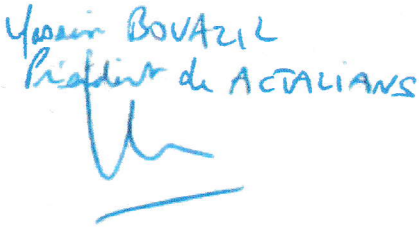 Yassin BOUAZIZ
Président de ACTALIANS